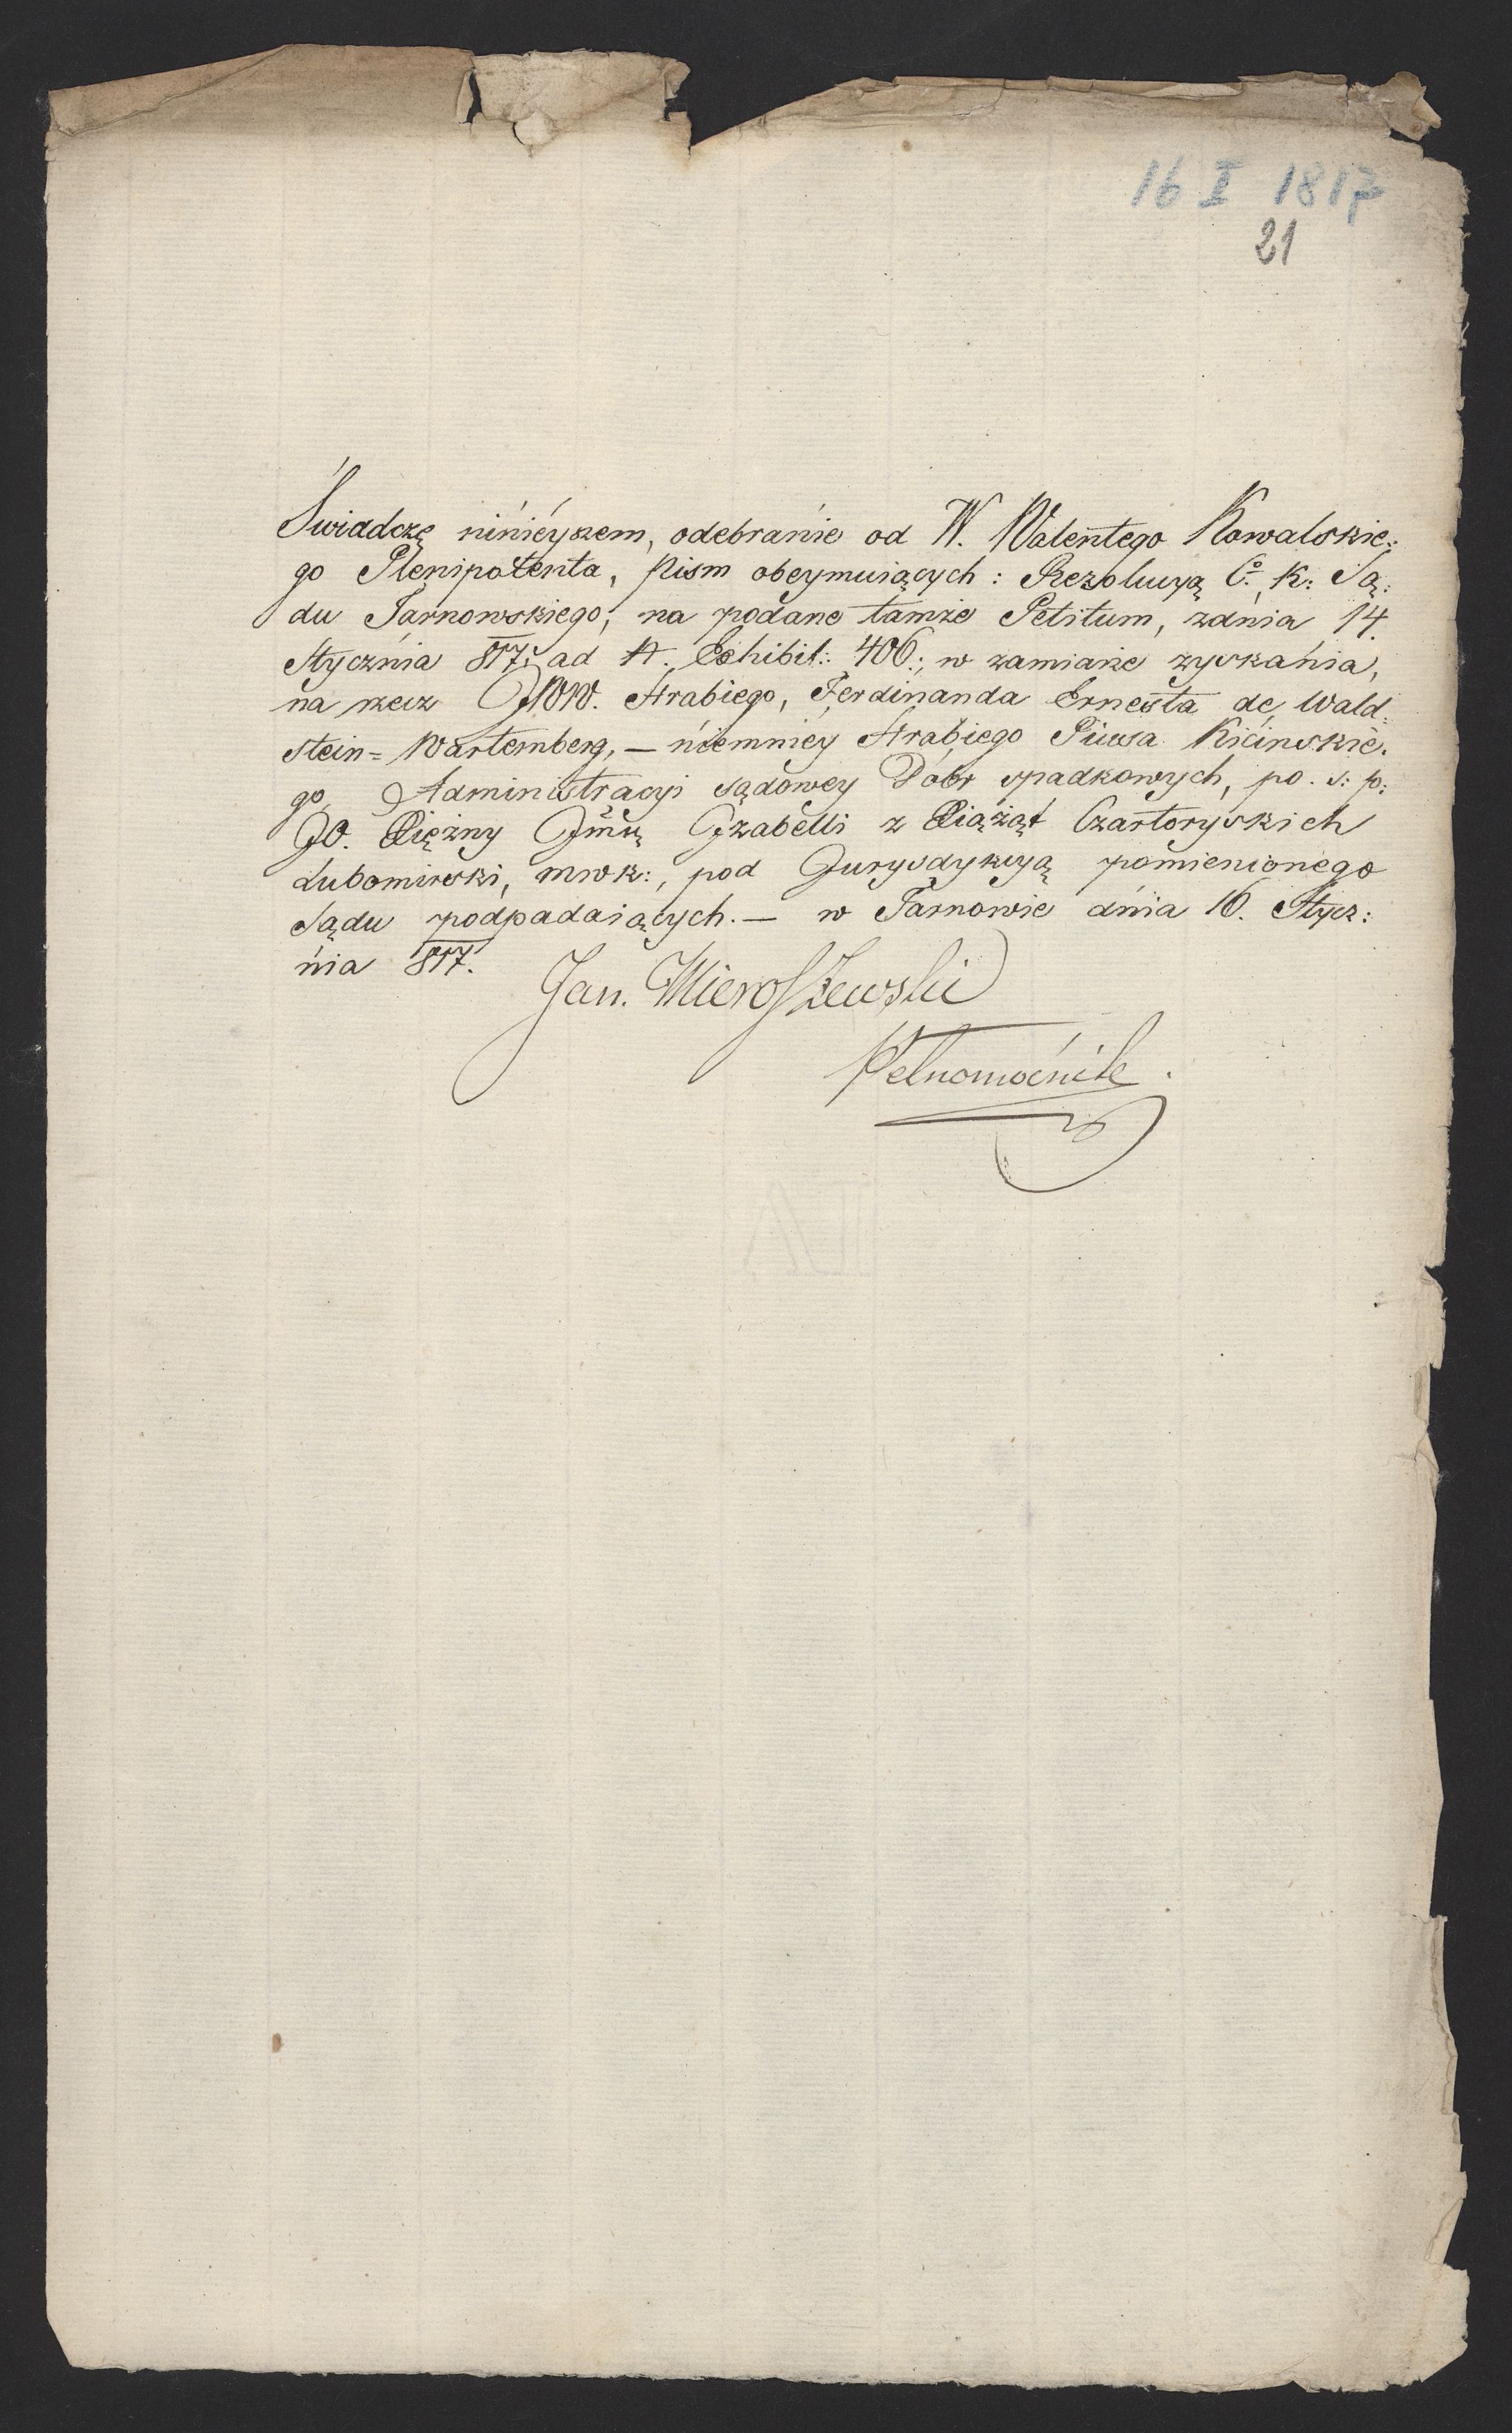 16 I 1817
21
Świadczę ninieyszem, odebranie od W. Walentego Kowalskie:
go Plenipotenta, Pism obeymuiących: Rezolucyą C.o K: Są:
du Tarnowskiego, na podane tamże Petitum, zdnia 14.
Stycznia 817. ad N. Exhibit: 406:, w zamiarze zyskania,
na rzecz JWW. Hrabiego, Ferdinanda Ernesta de Wald=
stein=Wartemberg, — niemniey Hrabiego Piusa Kicinskie.
go, Administracyi sądowey Dóbr spadkowych, po. s: p:
JO. Xiężny Jmci Izabelli z Xiążąt Czartoryskich
Lubomirski, mwk:, pod Jurysdykcyą pomienionego
Sądu podpadaiących. — w Tarnowie dnia 16. Stycz:
nia 817.
Jan. Mieroszewski
Pełnomocnik.